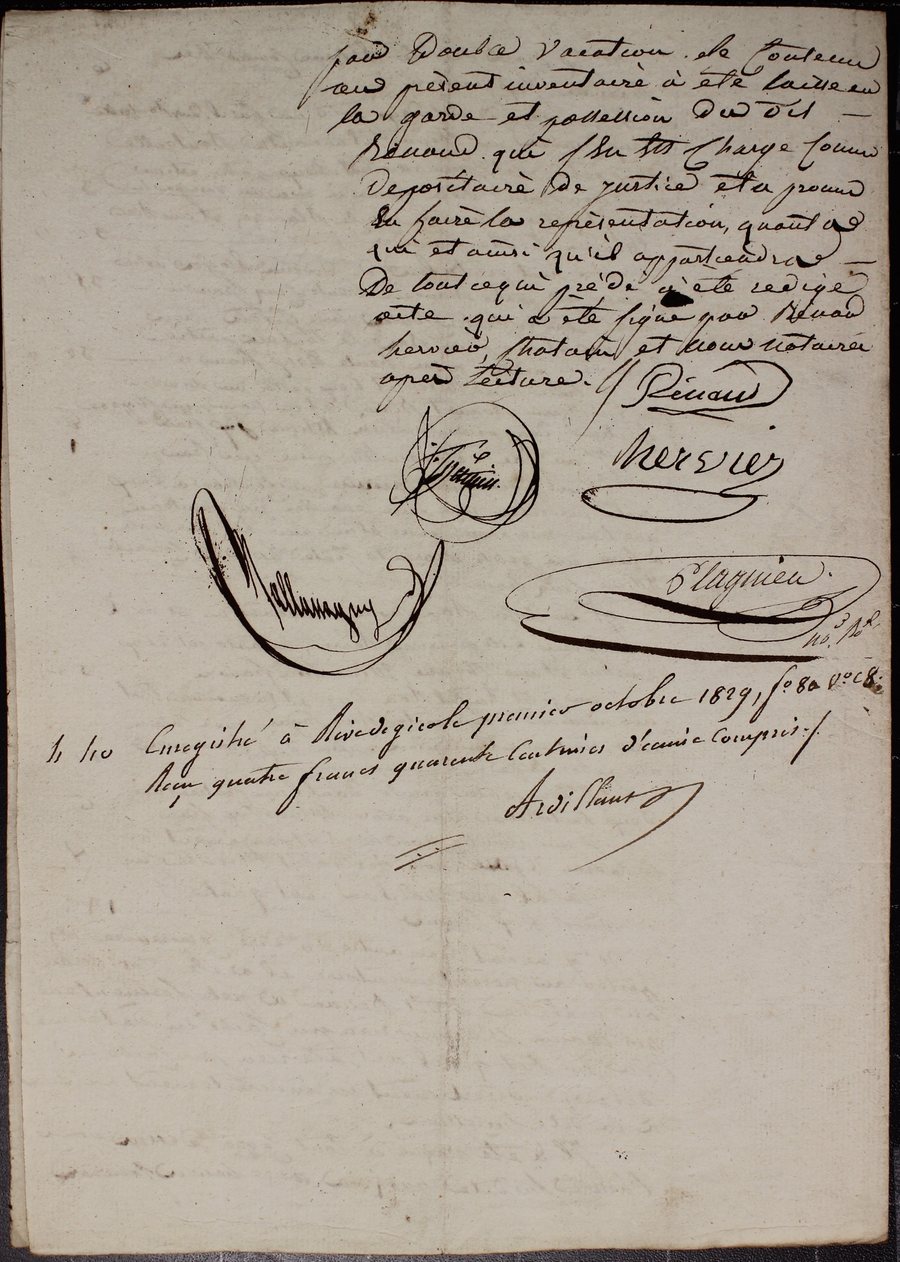 par Double vacation. le Contenu
au présent inventaire à été laisse en
la garde et possession du dit —
Renaud qui s'en est Chargé Comme
Depositaire de justice et a promis
En faire la représentation, quant a
qui et ainsi qu'il appartiendra —
De tout ce qui précéde a été redigé
acte qui à été signé par Renaud
hervier, et nous notaires
après Lecture. Renaud
hervier
Plagnieu
no.e R.al
4 40 Enregistré à Rivedegier le premier octobre 1829, f.o 80 v.o C 8.
Reçu quatre francs quarante Centimes d'ecime Compris./.
Ardillant